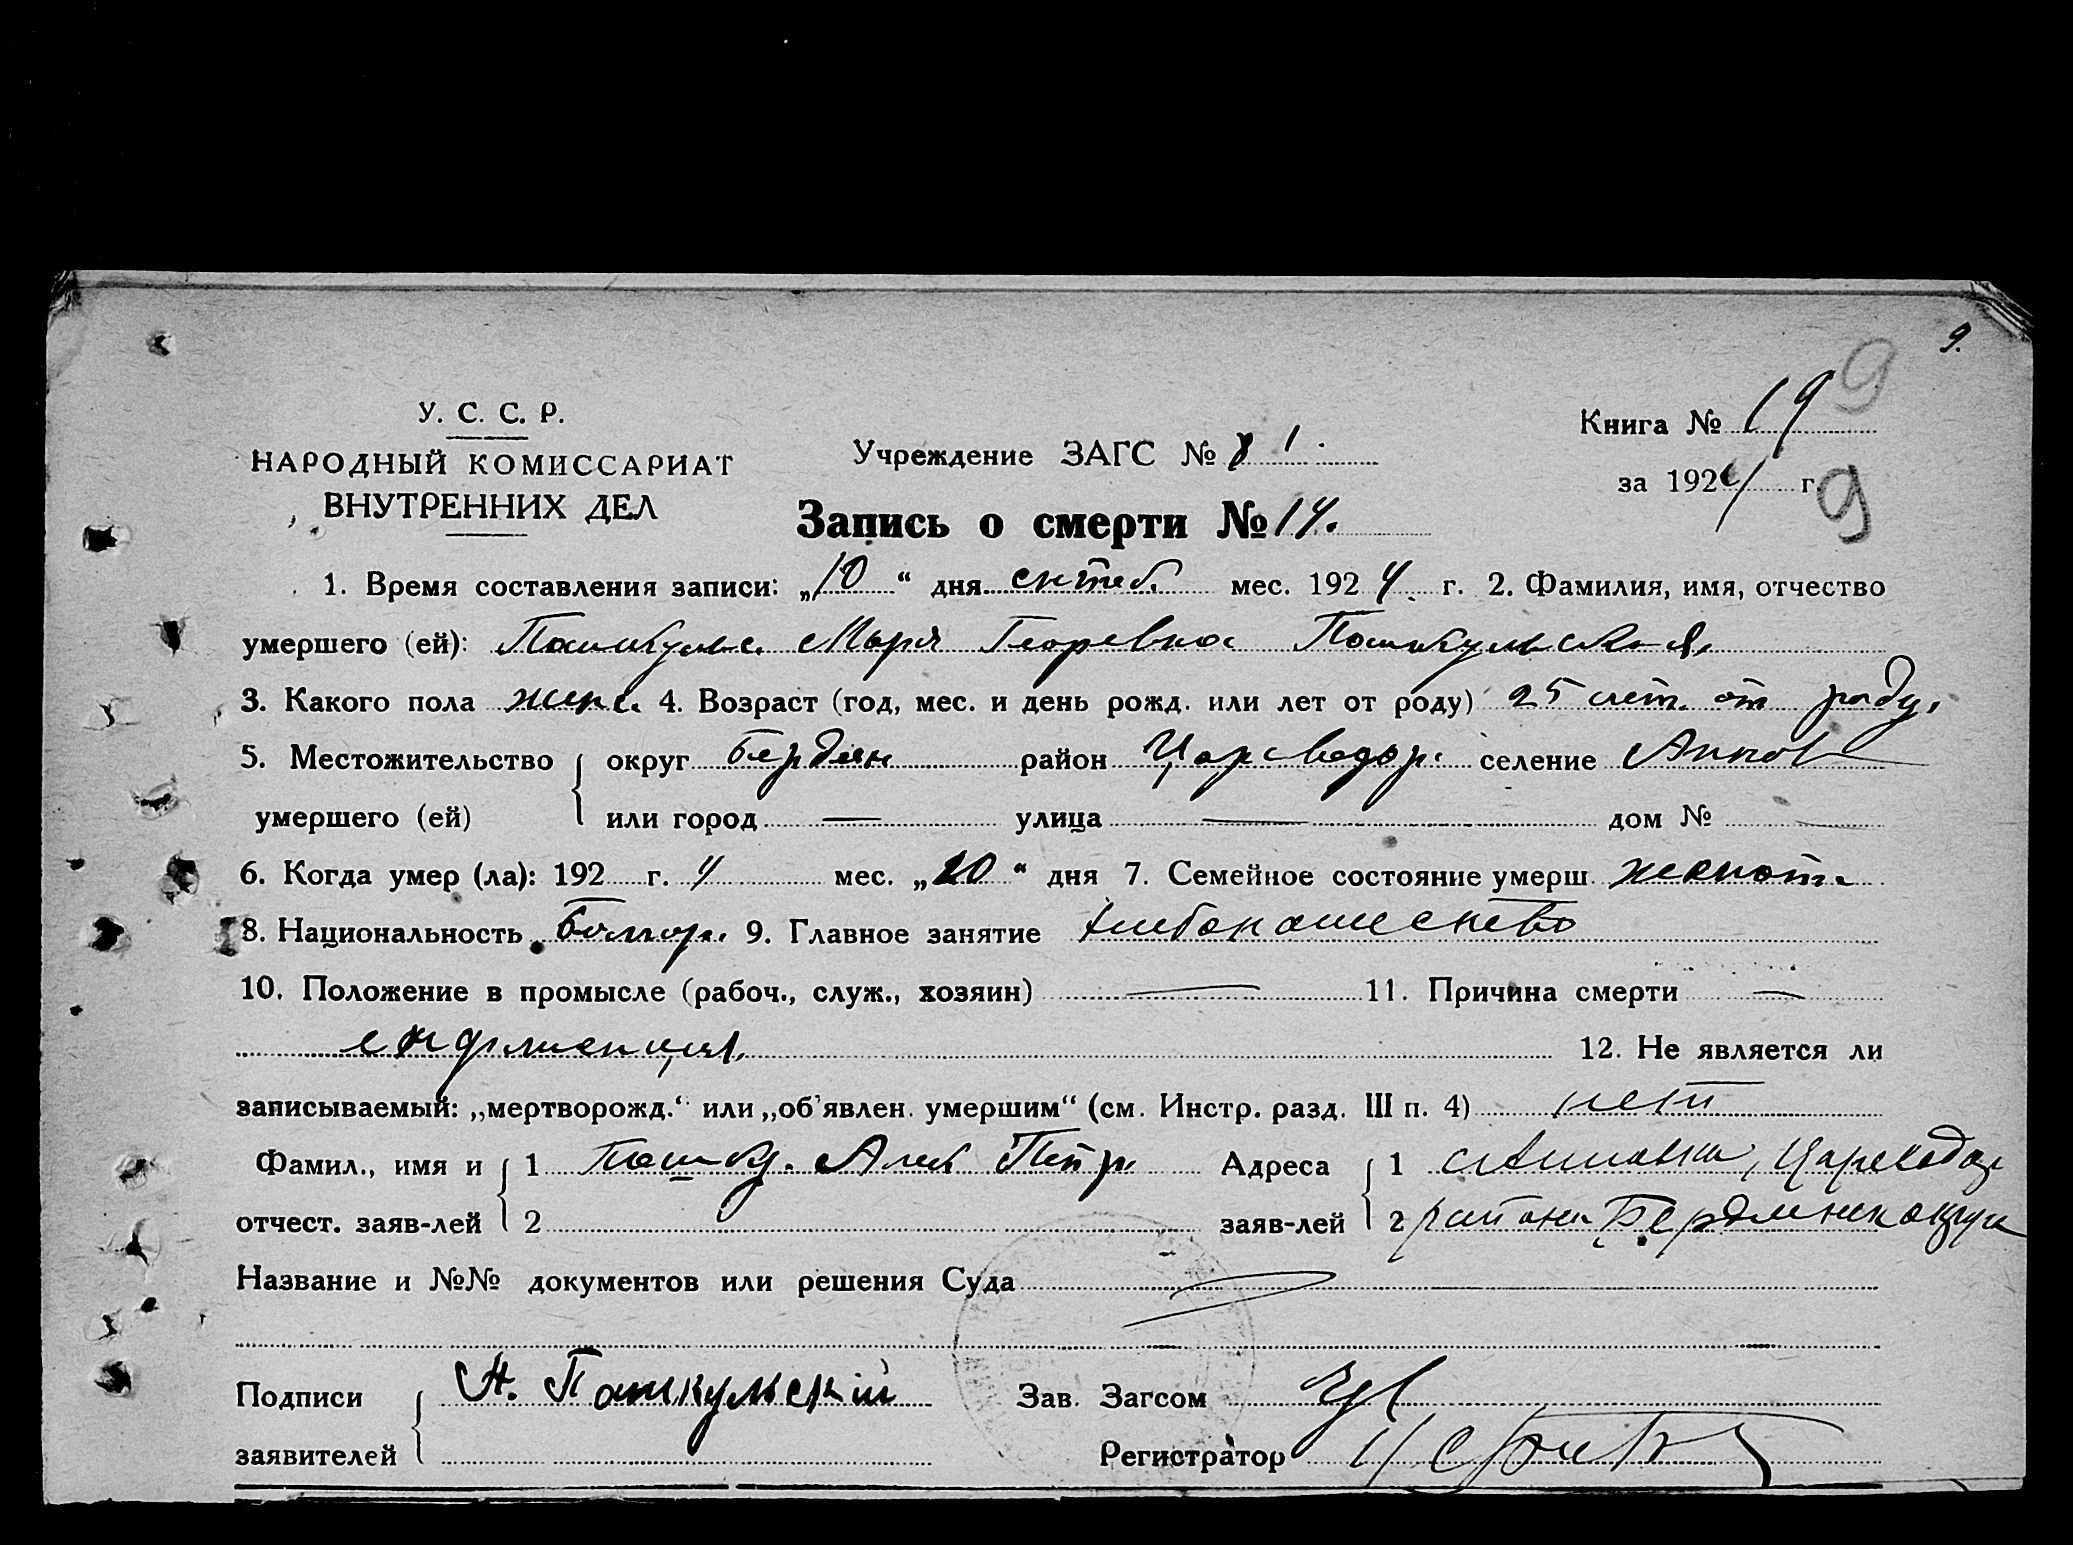 9.
9
У. С. С. Р.
НАРОДНЫЙ КОМИССАРИАТ
ВНУТРЕННИХ ДЕЛ
Учреждение ЗАГС № 81.
Книга № 19
за 1924 г.
9
Запись о смерти № 14.
1. Время составления записи: „10“ дня сктеб. мес. 1924 г. 2. Фамилия, имя, отчество
умершего (ей): Мария Пашкульская,
3. Какого пола женс. 4. Возраст (год, мес. и день рожд. или лет от роду) 25 лет. от роду,
5. Местожительство округ Бердян район Цареводар. селение Аннов
умершего (ей) или город — улица — дом № —
6. Когда умер (ла): 192 г. 4 мес. „20“ дня 7. Семейное состояние умерш.
8. Национальность Болгар. 9. Главное занятие хлебопашенство
10. Положение в промысле (рабоч., служ., хозяин) — 11. Причина смерти —
12. Не является ли
записываемый: „мертворожд.“ или „об’явлен. умершим“ (см. Инстр. разд. III п. 4) нет
Фамил., имя и 1 Пашку. Алек Петр. Адреса 1 с Анновка, Царевода
отчест. заяв-лей 2 заяв-лей 2 района Бердянск округа
Название и №№ документов или решения Суда
Подписи А. Пашкульский Зав. Загсом
заявителей Регистратор